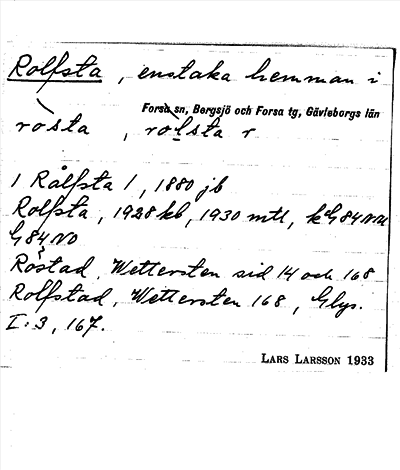 Rolfsta, enstaka hemman i
Forsa sn, Bergsjö och Forsa tg, Gävleborgs län
rò̀sta, rò̀lsta r
1 Rålfsta 1, 1880 jb
Rolfsta, 1928 kb, 1930 mtl, kG84NV
G84NO
Röstad, Wettersten sid 14 och 168
Rolfstad, Wettersten 168, Glys.
I:3, 167.
LARS LARSSON 1933